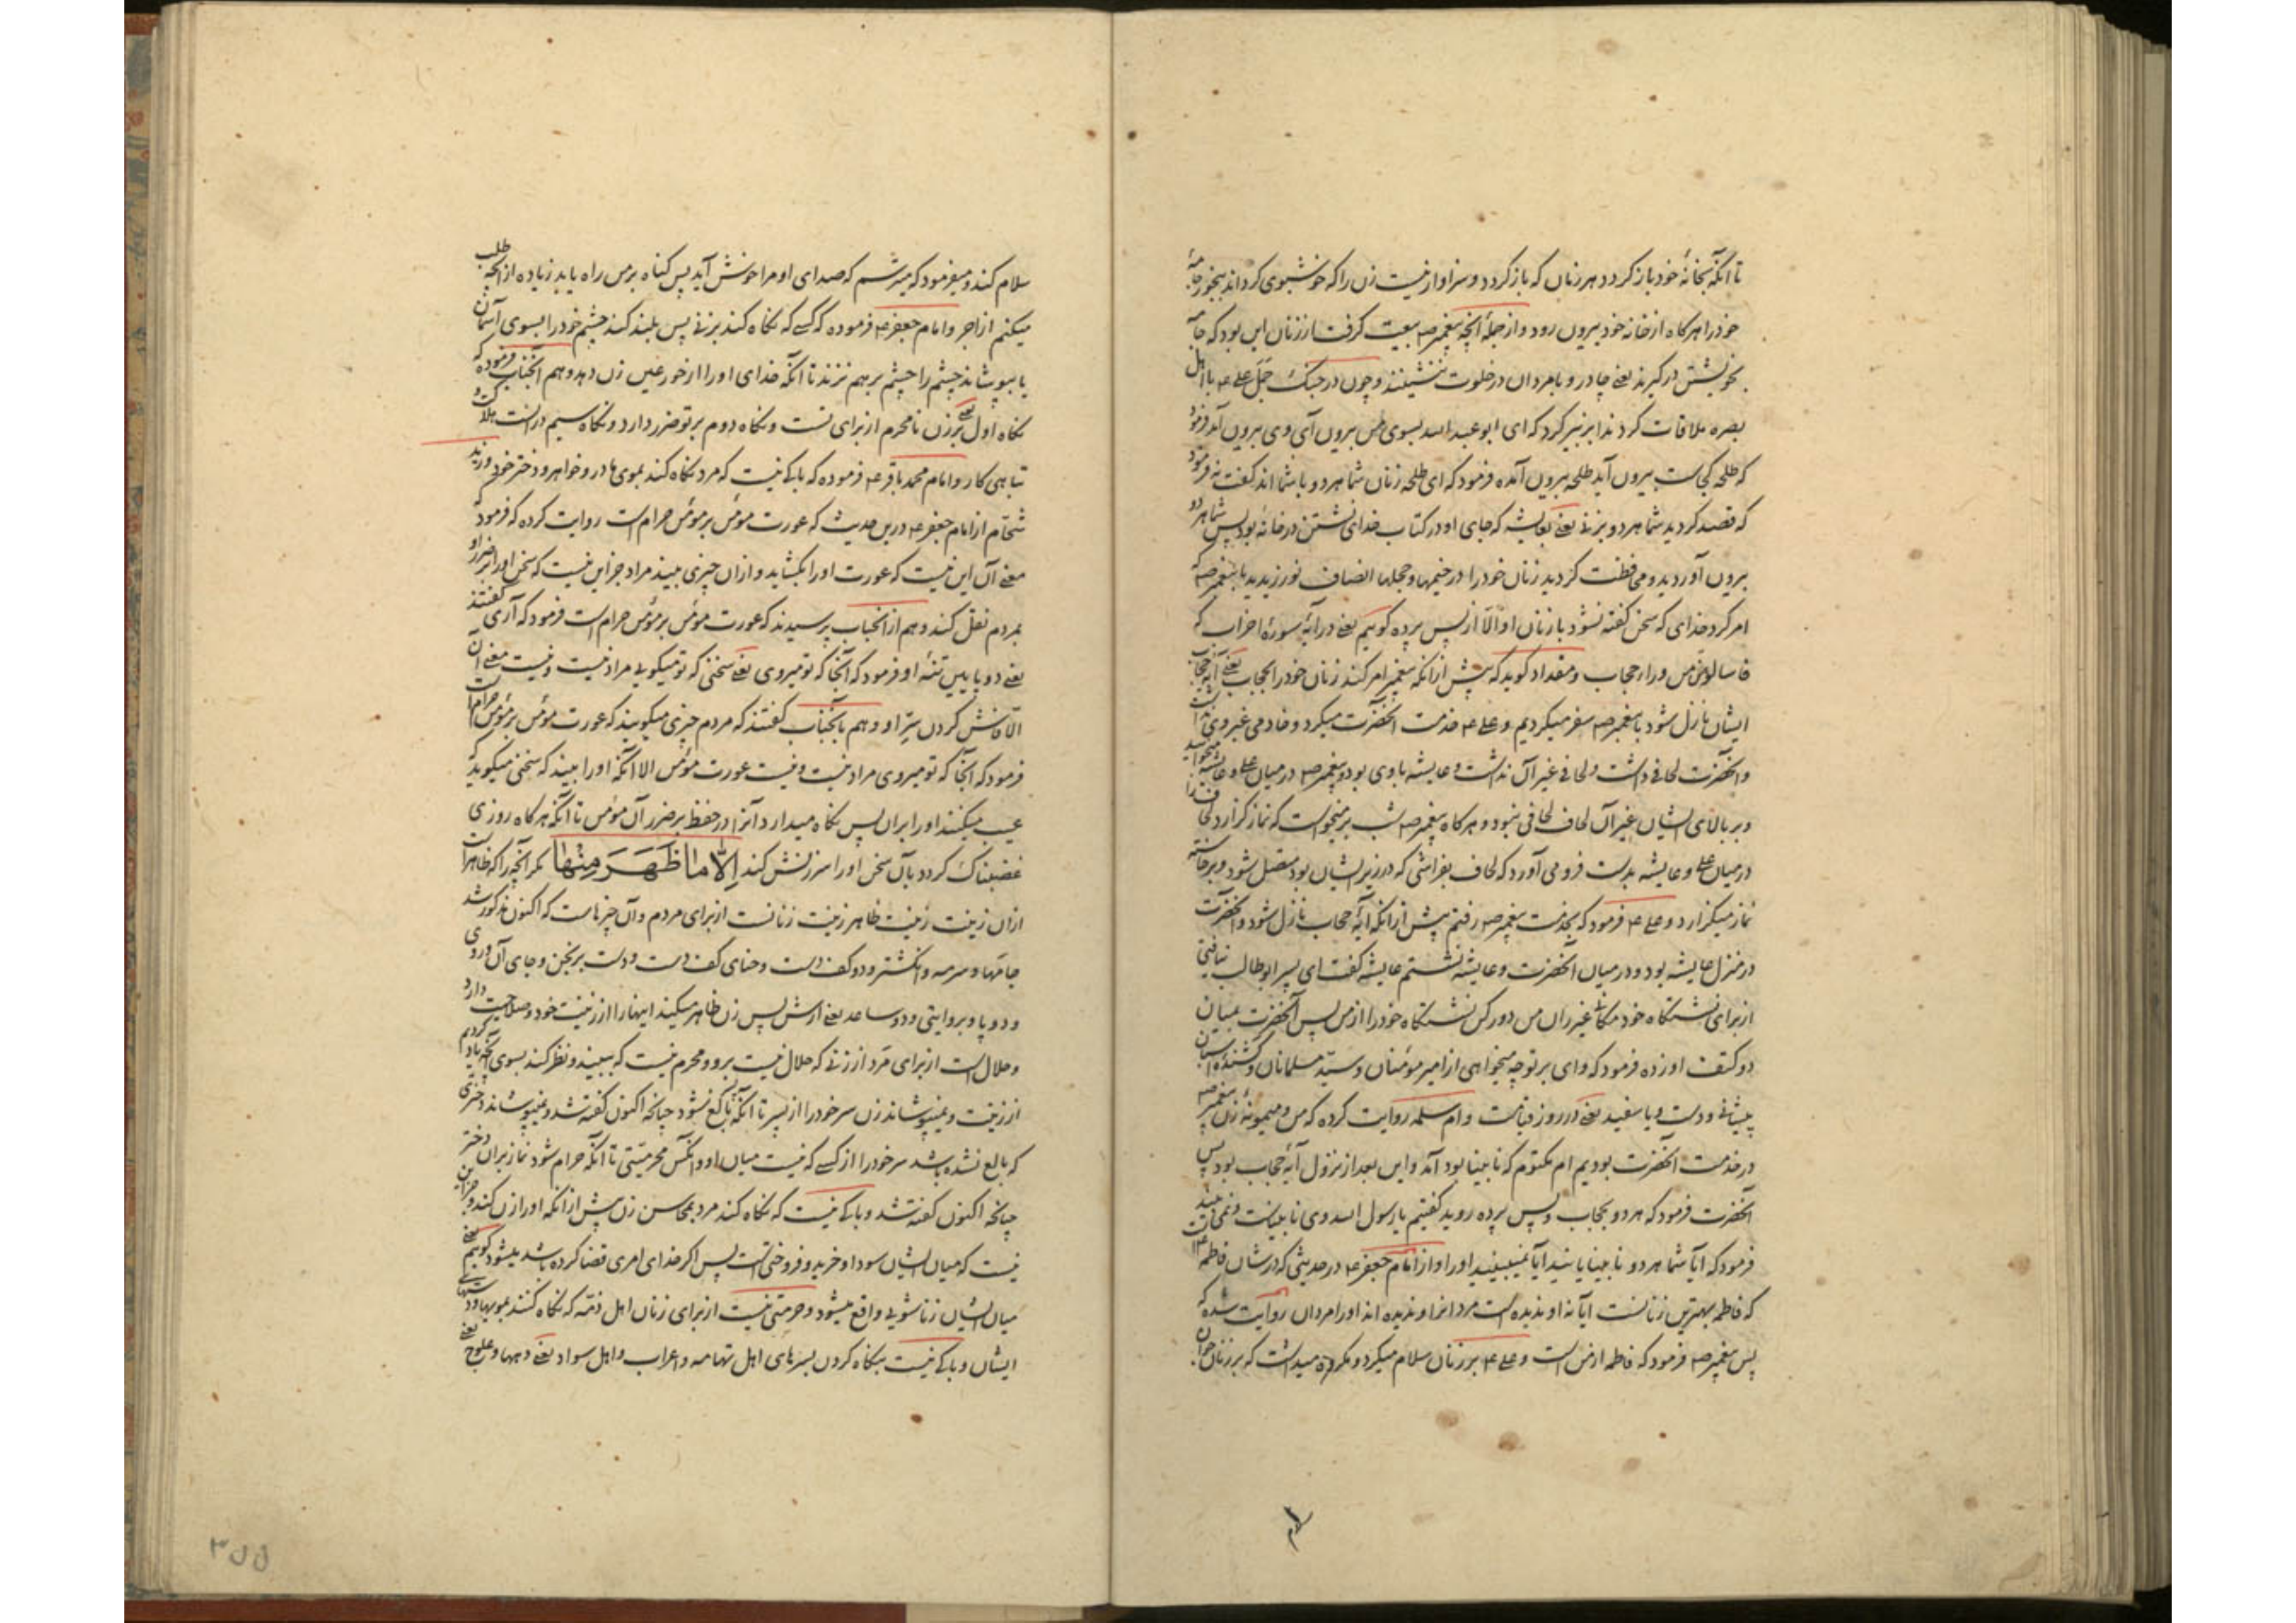 تا آنکه بخانهٔ خود باز کردد هر زنان که باز کردد و سزاوار نیست زن را که خوشبوی کرداند بخور جامهٔ
خود را هرکاه از خانه خود بیرون رود و از جملهٔ آنچه پیغمبر صه بیعت کرفت از زنان این بود که جامه
بخویشتن درکیرند یعنے چادر و بامردان در خلوت ننشینند و چون در جنک جمل علے ع با اهل
بصره ملاقات کرد ندا بر زبیر کرد که ای ابو عبد الله بسوی من بیرون آی وی بیرون آمد فرمود
که طلحه کجاست بیرون آید طلحه بیرون آمده فرمود که ای طلحه زنان شما هردو با شما اند کفت نه فرمود
که قصد کردید شما هردو بزنے یعنے بعایشه که جای او در کتاب خدای نشستن در خانهٔ بود پس شما هردو
بیرون آوردید و محافظت کردید زنان خود را در خیمها و حجلها انصاف نورزیدید با پیغمبر صه که
امر کرد خدای که سخن کفته نشود با زنان او الّا از پس پرده کوییم یعنے در آیهٔ سورهٔ احزاب که
فاسالوهن من وراء حجاب و مقداد کوید که پیش از انکه پیغمبر امر کند زنان خود را بحجاب یعنے آیه حجاب
ایشان نازل شود با پیغمبر صه سفر میکردیم و علے ع خدمت انحضرت میکرد و خادمی غیر وی نداشت
و انحضرت لحافے داشت و لحافے غیر آن نداشت و عایشه باوی بود و پیغمبر صه در میان علے و عایشه میخوابید
و بر بالای ایشان غیر آن لحاف لحافی نبود و هرکاه پیغمبر صه شب برمیخواست که نماز کزارد لحاف را
در میان علے و عایشه بدست فرو می آورد که لحاف بفراشی که در زیر ایشان بود متصل شود و برخاسته
نماز میکزارد و علے ع فرمود که بخدمت پیغمبر صه رفتم پیش از انکه آیهٔ حجاب نازل شود و انحضرت
در منزل عایشه بود و در میان انحضرت و عایشه نشستم عایشه کفت ای پسر ابو طالب نیافتی
از برای نشستکاه خود مکانے غیر ران من دور کن نشستکاه خود را از من پس آنحضرت بمیان
دو کتف او زده فرمود که وای بر تو چه میخواهی از امیر مؤمنان و سیّد مسلمانان و کشندهٔ اسبان
پیشانے و دست و پا سفید یعنے در روز قیامت و ام سلمه روایت کرده که من و میمونهٔ زن پیغمبر صه
در خدمت انحضرت بودیم ام مکتوم که نابینا بود آمد و این بعد از نزول آیهٔ حجاب بود پس
آنحضرت فرمود که هردو بحجاب و پس پرده روید کفتیم یا رسول الله وی نابیناست و نمی بیند
فرمود که آیا شما هردو نابینایانید آیا نمیبینید او را و از امام جعفر ع در حدیثی که در شان فاطمه ع است
که فاطمه بهترین زنانست ایا نه او ندیده است مردانرا و ندیده اند او را مردان روایت شده که
پس پیغمبر صه فرمود که فاطمه از من است و علے ع بر زنان سلام میکرد و مکروه میداشت که بر زنان جوان
سلام
سلام کند و میفرمود که میترسم که صدای او مرا خوش آید پس کناه بر من راه یابد زیاده از آنچه طلب
میکنم از اجر و امام جعفر ع فرموده که کسے که نکاه کند بزنے پس بلند کند چشم خود را بسوی آسمان
یا بپوشاند چشم را چشم بر هم نزند تا آنکه خدای او را از حور عین زن دهد و هم آنجناب فرموده که
نکاه اول یعنے بر زن نامحرم از برای تست و نکاه دوم بر تو ضرر دارد و نکاه سیم در انست هلاکت و
تباهی کار و امام محمد باقر ع فرموده که باکے نیست که مرد نکاه کند بموی مادر و خواهر و دختر خود و زید
شحّام از امام جعفر ع درین حدیث که عورت مؤمن بر مؤمن حرام است روایت کرده که فرمود که
معنے آن این نیست که عورت او را بکشاید و از ان چیزی ببیند مراد جز این نیست که سخن او را بضرر او
بمردم نقل کند و هم از انجناب پرسیدند که عورت مؤمن بر مؤمن حرام است فرمود که آری کفتند
یعنے دو پایین تنهٔ او فرمود که آنجا که تو میروی یعنے سخنی که تو میکویے مراد نیست و نیست معنے آن
الّا فاش کردن سرّ او و هم بآنجناب کفتند که مردم چیزی میکویند که عورت مؤمن بر مؤمن حرام است
فرمود که آنجا که تو میروی مراد نیست و نیست عورت مؤمن الا آنکه او را ببیند که سخنی میکوید که
عیب میکنند او را بران پس نکاه میدارد آنرا در حفظ بر ضرر آن مؤمن تا آنکه هرکاه روزی
غضبناک کردد بآن سخن او را سرزنش کند اِلّا ما ظَهَرَ مِنْها مکر آنچه را که ظاهر است
ازان زینت زینت ظاهر زینت زنانست از برای مردم و آن چیزهاست که اکنون مذکور شد
جامها و سرمه و انکشتر و دو کف دست و حنای کف دست و دست برنجن و جای آن و روی
و دو پا و بروایتی و دو ساعد یعنے ارش پس زن ظاهر میکند اینها را از زینت خود و صلاحیت دارد
و حلال است از برای مرد از زنے که حلال نیست بر و و محرم نیست که ببیند و نظر کند بسوی آنچه یاد کردیم
از زینت و نمیپوشاند زن سر خود را از پسر تا آنکه بالغ نشود چنانچه اکنون کفته شد و نمیپوشاند دختری
که بالغ نشده باشد سر خود را از کسے که نیست میان او و انکس محرمیّتی تا آنکه حرام شود نماز بران دختر
چنانچه اکنون کفته شد و باکے نیست که نکاه کند مرد بمحاسن زن پیش از انکه او را زن کند و جز این
نیست که میان ایشان سودا و خرید و فروختی است پس اکر خدای امری قضا کرده باشد میشود کوییم یعنے
میان ایشان زناشویے واقع میشود و حرمتی نیست از برای زنان اهل ذمّه که نکاه کنند بمویها و دستهای
ایشان و باکے نیست بنکاه کردن بسرهای اهل تهامه و اعراب و اهل سواد یعنے دهها و علوج
۳۵۵